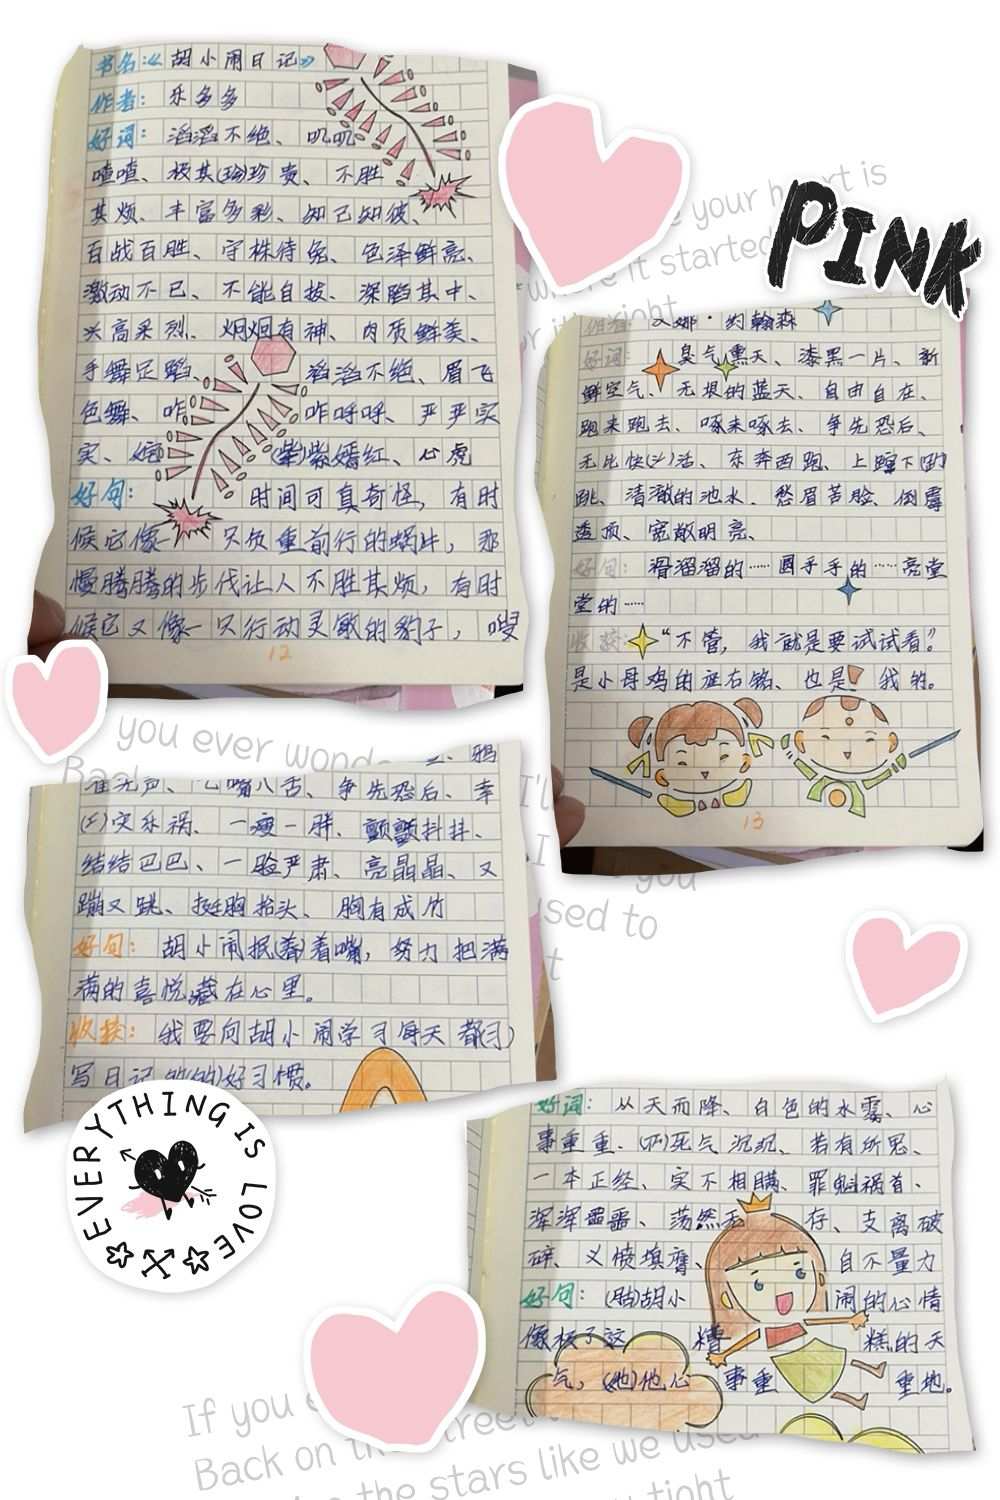 书名:《胡小闹日记》
作者: 乐多多
好词: 滔滔不绝、叽叽
喳喳、极其(珍)珍贵、不胜
其烦、丰富多彩、知己知彼、
百战百胜、守株待兔、色泽鲜亮、
激动不已、不能自拔、深陷其中、
兴高采烈、炯炯有神、肉质鲜美、
手舞足蹈、滔滔不绝、眉飞
色舞、咋咋呼呼、严严实
实、姹(紫)紫嫣红、心虚
好句: 时间可真奇怪，有时
候它像一只负重前行的蜗牛，那
慢腾腾的步伐让人不胜其烦，有时
候它又像一只行动灵敏的豹子，嗖
12
PINK
your heart is
where it started
right
作者: 娜·约翰森
好词: 臭气熏天、漆黑一片、新
鲜空气、无垠的蓝天、自由自在、
跑来跑去、啄来啄去、争先恐后、
无比快()活、东奔西跑、上蹿下(跳)
跳、清澈的池水、愁眉苦脸、倒霉
透顶、宽敞明亮、
好句: 滑溜溜的……圆乎乎的……亮堂
堂的……
收获: “不管，我就是要试试看?
是小母鸡的座右铭、也是我的。
13
you ever wonde
Back
I'l
I
you
used to
t
、鸦
雀无声、七嘴八舌、争先恐后、幸
()灾乐祸、一瘦一胖、颤颤抖抖、
结结巴巴、一脸严肃、亮晶晶、又
蹦又跳、挺胸抬头、胸有成竹
好句: 胡小闹抿(着)着嘴，努力把满
满的喜悦藏在心里。
收获: 我要向胡小闹学习每天都(习)
写日记的(的)好习惯。
EVERYTHING IS LOVE
好词: 从天而降、白色的水雾、心
事重重、()死气沉沉、若有所思、
一本正经、实不相瞒、罪魁祸首、
浑浑噩噩、荡然无存、支离破
碎、义愤填膺、自不量力
好句: (胡)胡小闹的心情
像极了这糟糕的天
气，(他)他心事重重地。
If you
Back on the street
the stars like we used
tight